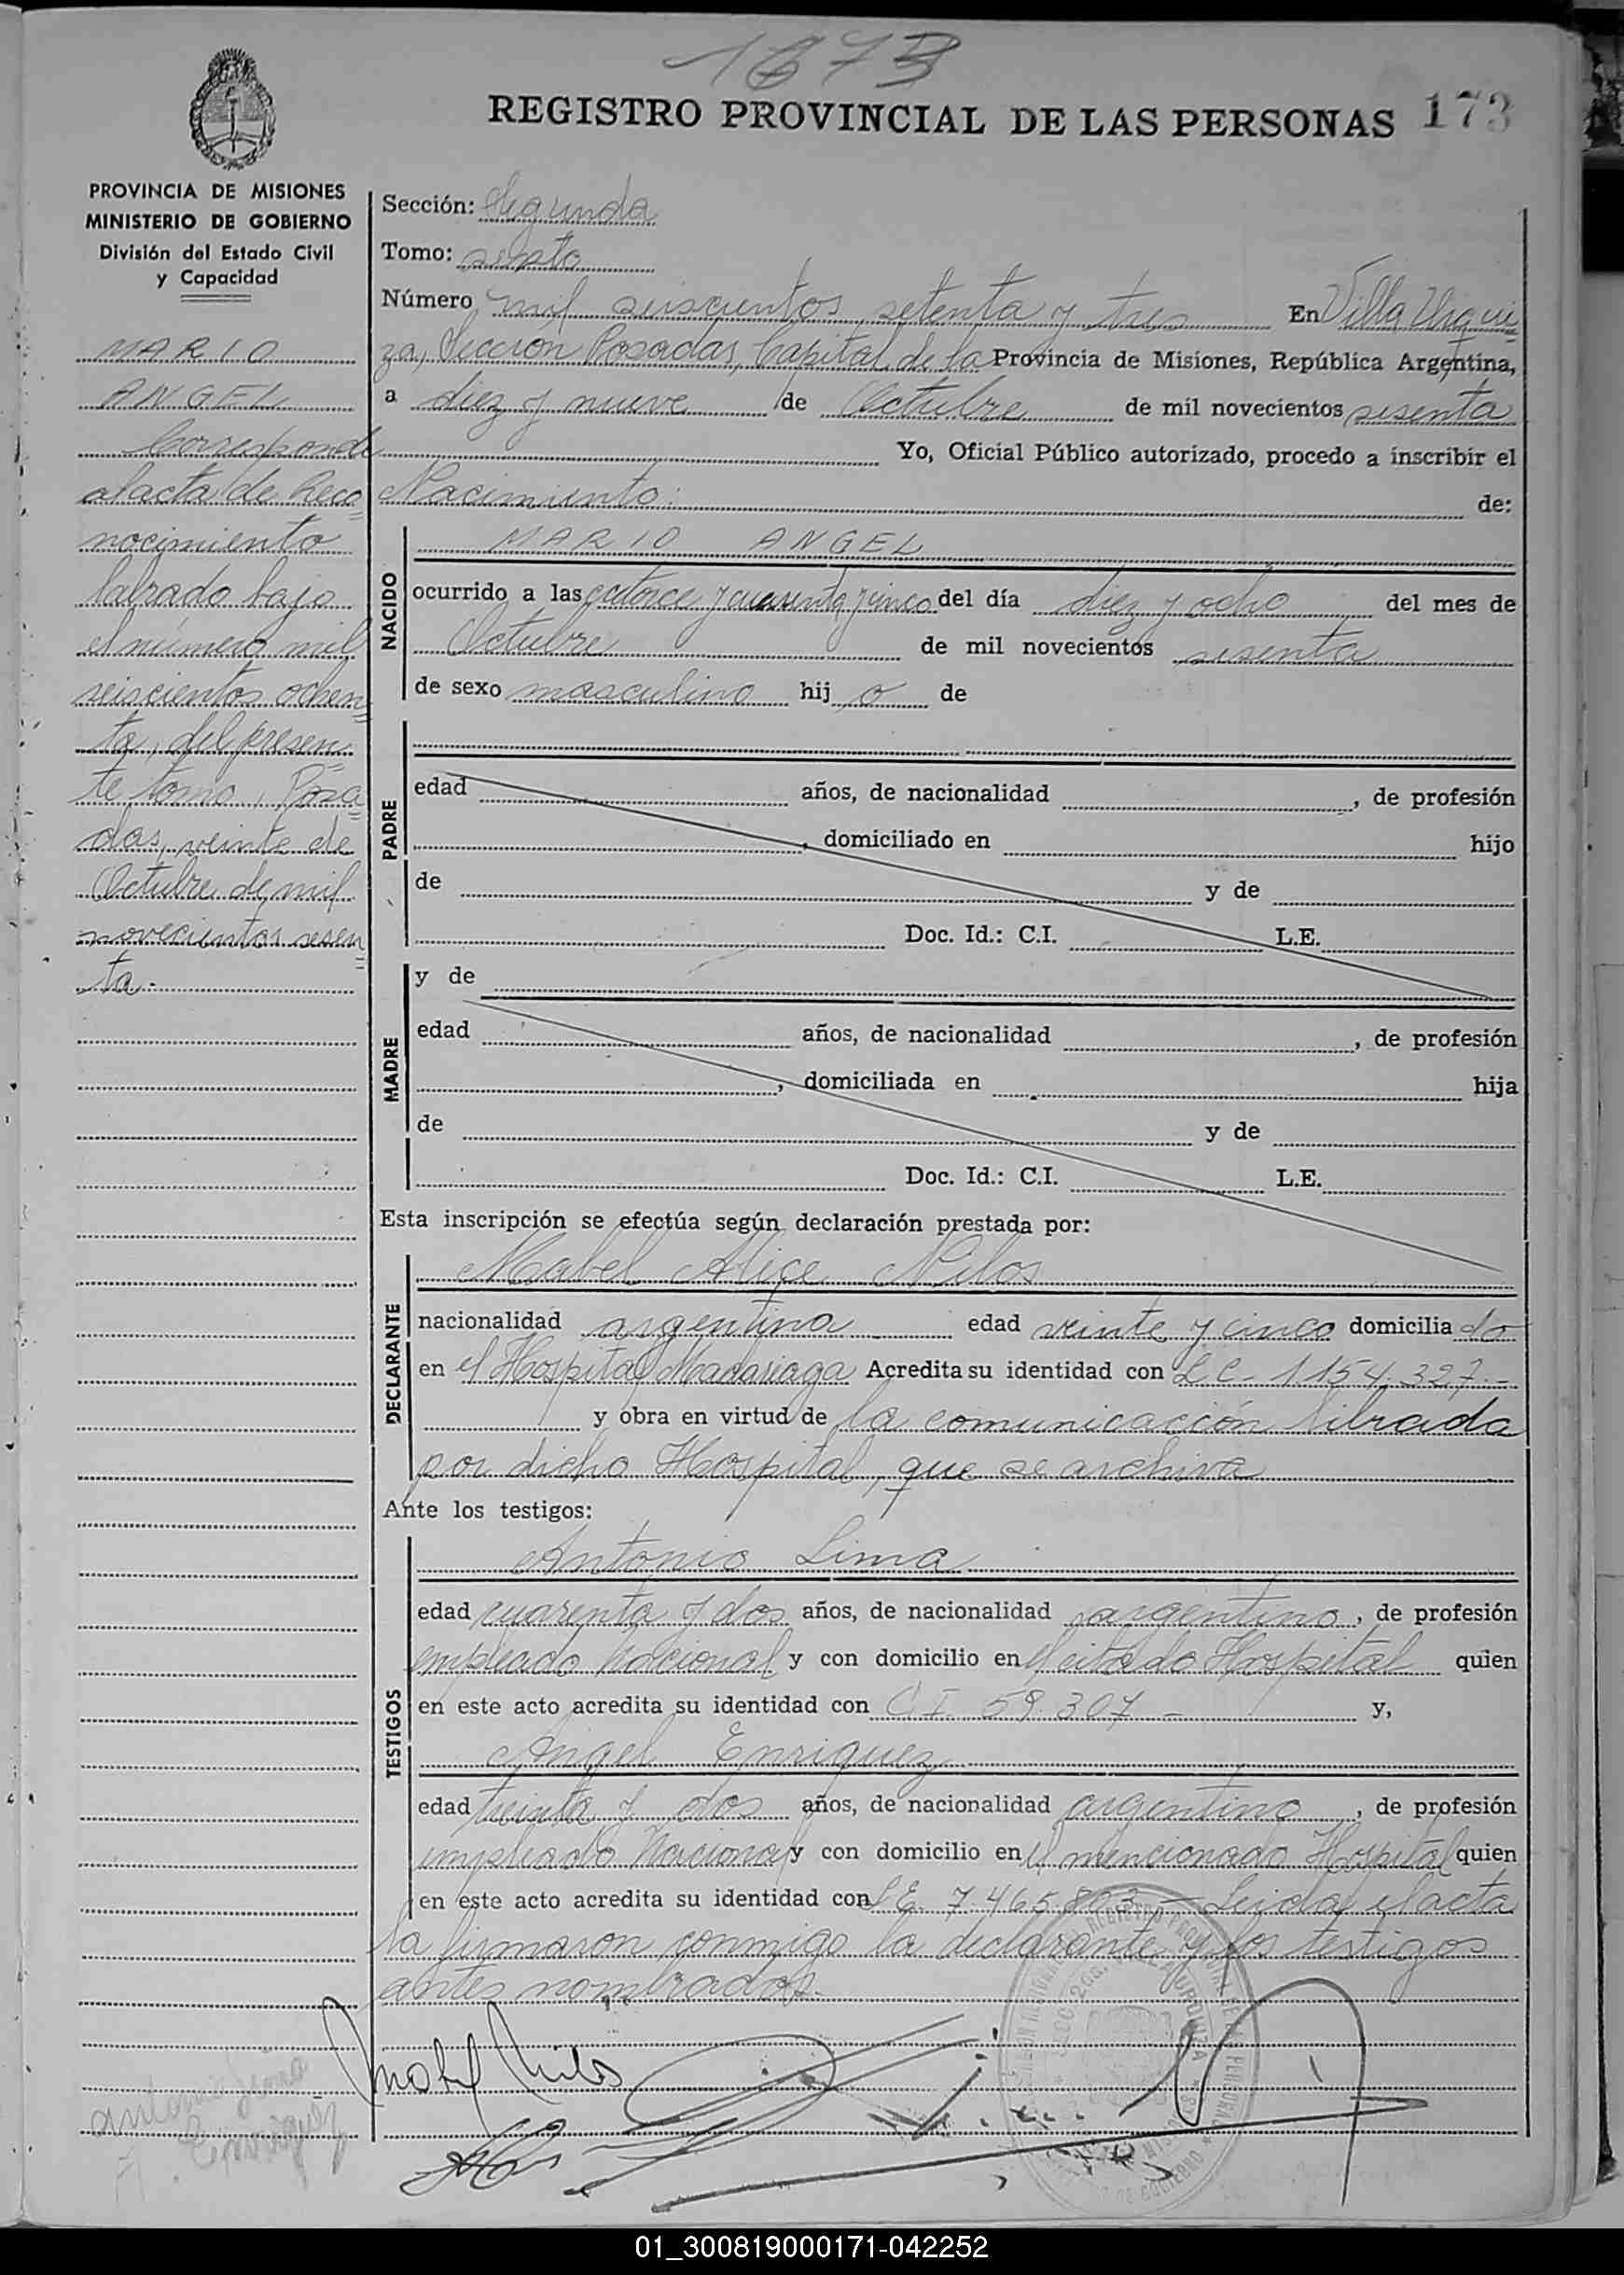 1673
REGISTRO PROVINCIAL DE LAS PERSONAS 173
PROVINCIA DE MISIONES
MINISTERIO DE GOBIERNO
División del Estado Civil
y Capacidad
MARIO
ANGEL
Corresponde
al acta de Reco=
nocimiento
labrado bajo
el número mil
seiscientos ochen=
ta, del presen=
te tomo, Posa=
das, veinte de
Octubre de mil
novecientos sesen=
ta.-
Sección: Segunda
Tomo: sexto
Número mil seiscientos setenta y tres En Villa Urqui=
za, Sección Posadas, Capital de la Provincia de Misiones, República Argentina,
a diez y nueve de Octubre de mil novecientos sesenta
Yo, Oficial Público autorizado, procedo a inscribir el
Nacimiento: de:
NACIDO
MARIO ANGEL
ocurrido a las catorce y cuarenta y cinco del día diez y ocho del mes de
Octubre de mil novecientos sesenta
de sexo masculino hij o de
PADRE
edad años, de nacionalidad , de profesión
, domiciliado en hijo
de y de
Doc. Id.: C.I. L.E.
MADRE
y de
edad años, de nacionalidad , de profesión
, domiciliada en hija
de y de
Doc. Id.: C.I. L.E.
Esta inscripción se efectúa según declaración prestada por:
DECLARANTE
Mabel Alice Nilos
nacionalidad argentina edad veinte y cinco domicilia do
en el Hospital Madariaga Acredita su identidad con L C - 1.154.327.-
y obra en virtud de la comunicación librada
por dicho Hospital, que se archiva
Ante los testigos:
TESTIGOS
Antonio Lima
edad cuarenta y dos años, de nacionalidad argentino, de profesión
empleado Nacional y con domicilio en el citado Hospital quien
en este acto acredita su identidad con C. I. 59.307 - y,
Angel Enriquez
edad treinta y dos años, de nacionalidad argentino, de profesión
empleado Nacional y con domicilio en el mencionado Hospital quien
en este acto acredita su identidad con L E. 7.465.803 - Leida el acta
la firmaron conmigo la declarante y los testigos
antes nombrados.-
Mabel Nilos
Antonio Lima
A. Enriquez
01_300819000171-042252